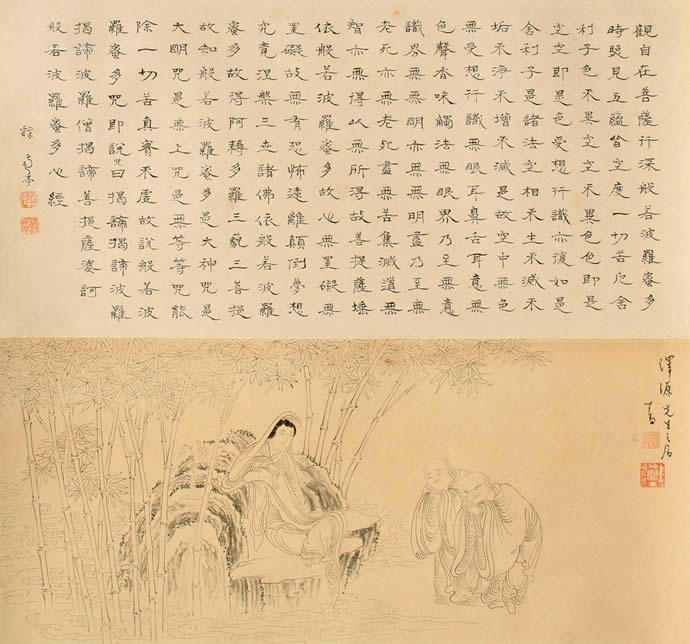 觀自在菩薩行深般若波羅蜜多
時照見五蘊皆空度一切苦厄舍
利子色不異空空不異色色即是
空空即是色受想行識亦復如是
舍利子是諸法空相不生不滅不
垢不淨不增不減是故空中無色
無受想行識無眼耳鼻舌身意無
色聲香味觸法無眼界乃至無意
識界無無明亦無無明盡乃至無
老死亦無老死盡無苦集滅道無
智亦無得以無所得故菩提薩埵
依般若波羅蜜多故心無罣礙無
罣礙故無有恐怖遠離顛倒夢想
究竟涅槃三世諸佛依般若波羅
蜜多故得阿耨多羅三藐三菩提
故知般若波羅蜜多是大神咒是
大明咒是無上咒是無等等咒能
除一切苦真實不虛故說般若波
羅蜜多咒即說咒曰揭諦揭諦波羅
揭諦波羅僧揭諦菩提薩婆訶
般若波羅蜜多心經
澤源先生之屬